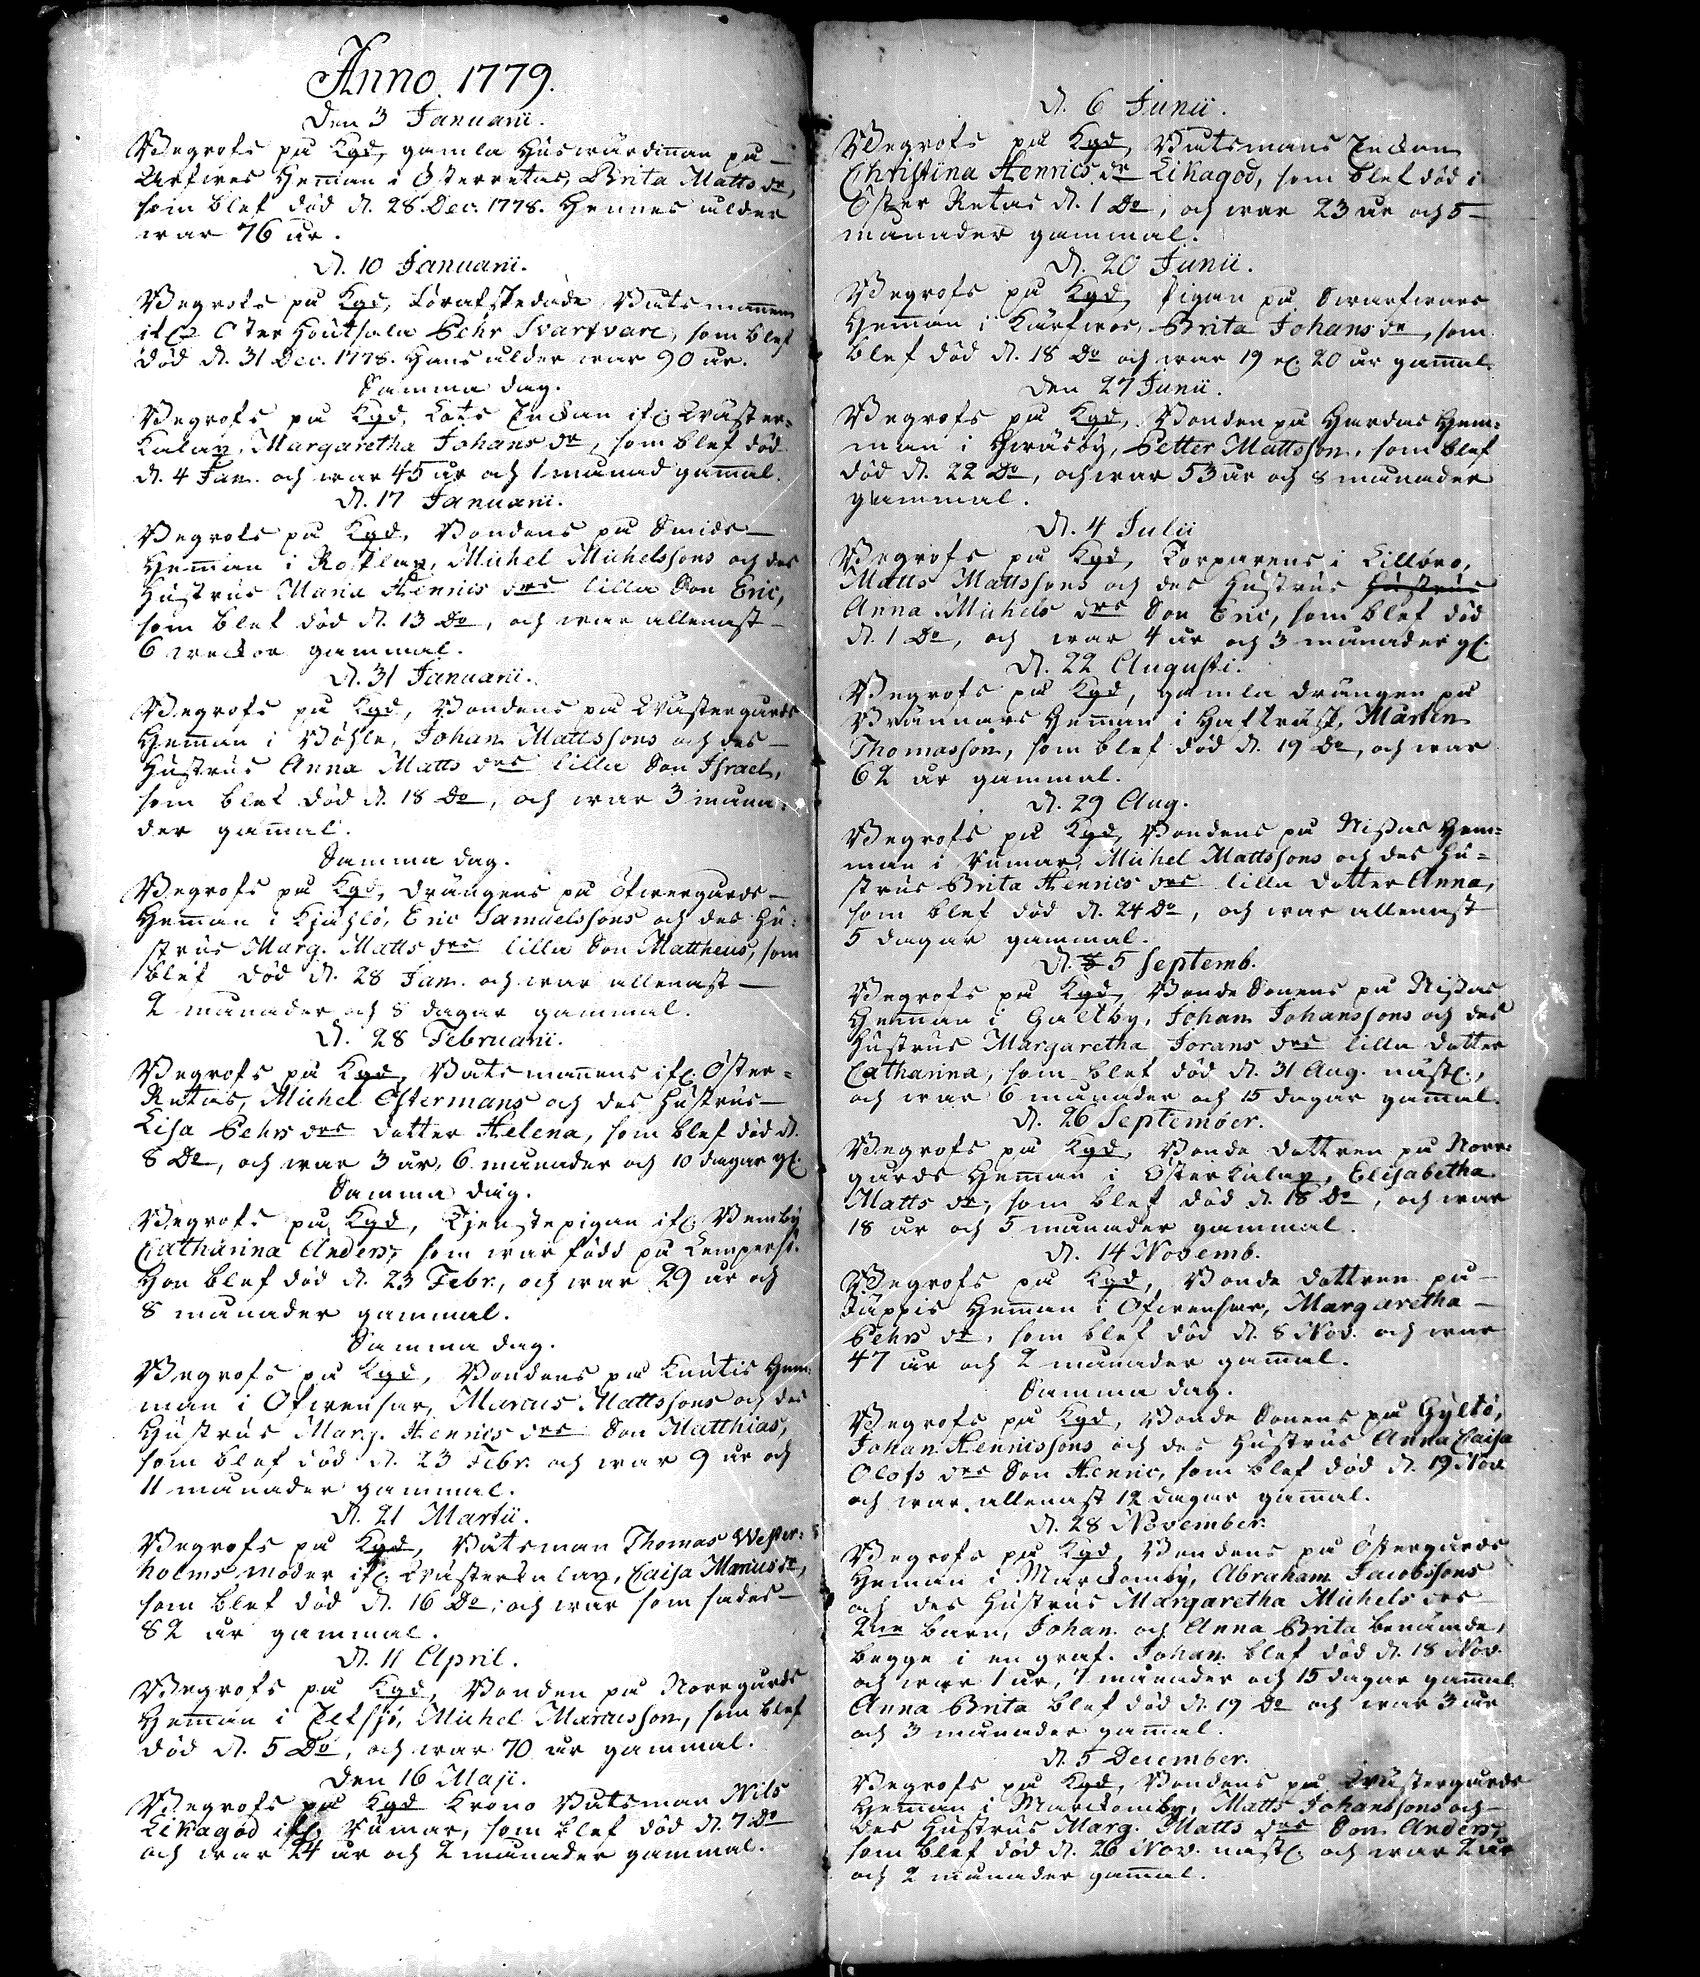 Anno 1779.
Den 3 Januarii.
Begrofs på Kgd, gamla Huswärdinnan på
Hemman i Österretais, Brita Matts dr,
som blef död d. 28 Dec. 1778. Hennes ålder
war 76 år.
D. 10 Januarii.
Begrofs på Kgd, förafskedade Båtsmannen
ifr. Öster Houtsala Pehr Svartvare, som blef
död d. 31 Dec. 1778. Hans ålder war 90 år.
Samma dag.
Begrofs på Kgd, Lots Enckan ifr. Wäster-
kalax, Margaretha Johans dr, som blef död
d. 4 Jan. och war 45 år och 1 månad gamal.
D. 17 Januarii.
Begrofs på Kgd, Bondens på Smids
Hemman i Rosklax, Michel Michelssons och des
Hustrus Maria Henrics drs lilla Son Eric,
som blef död d. 13 Do, och war allenast
6 weckor gammal.
D. 31 Januarii.
Begrofs på Kgd, Bondens på Wästergårds
Hemman i Böhle, Johan Mattssons och des
Hustrus Anna Matts drs lilla Son Israel,
som blef död d. 18 Do, och war 3 måna-
der gammal.
Samma dag.
Begrofs på Kgd, Drängens på Öfwergårds
Hemman i Kjählö, Eric Samuelssons och des Hu-
strus Marg. Matts drs lilla Son Mattheus, som
blef död d. 28 Jan. och war allenast
2 månader och 8 dagar gammal.
D. 28 Februarii.
Begrofs på Kgd, Båtsmannens ifr. Öster-
Retais, Michel Östermans och des Hustrus
Lisa Pehrs drs dotter Helena, som blef död d.
8 Do, och war 3 år, 6 månader och 10 dagar gl.
Samma dag.
Begrofs på Kgd, Tjenstepigan ifr. Wemby
Catharina Anders, som war född på Kempersö.
Hon blef död d. 23 Febr., och war 29 år och
8 månader gammal.
Samma dag.
Begrofs på Kgd, Bondens på Knutis Hem-
man i Öfwensar, Marcus Mattssons och des
Hustrus Marg. Henrics drs Son Matthias,
som blef död d. 23 Febr. och war 9 år och
11 månader gammal.
D. 21 Martii.
Begrofs på Kgd, Båtsman Thomas Wester-
holms moder ifr. Wästerkalax, Caisa Marcus dr,
som blef död d. 16 Do, och war som sades
82 år gammal.
D. 11 April.
Begrofs på Kgd, Bonden på Norrgårds
Hemman i Retsjö, Michel Marcusson, som blef
död d. 5 Do, och war 70 år gammal.
Den 16 Maji.
Begrofs på Kgd Krono Båtsman Nils
Likagod ifr. Wumar, som blef död d. 7 Do
och war 24 år och 2 månader gammal.
D. 6 Junii.
Begrofs på Kgd, Båtsmans Enckan
Christina Henrics dr Likagod, som blef död i
Öster Retais d. 1 Do, och war 23 år och 5
månader gammal.
D. 20 Junii.
Begrofs på Kgd, Pigan på Swarfwars
Hemman i Kärfwos, Brita Johans dr, som
blef död d. 18 Do och war 19 år. 20 år gamal.
Den 27 Junii.
Begrofs på Kgd, Bonden på Hardas Hem-
man i Hwäsby, Petter Mattsson, som blef
död d. 22 Do, och war 53 år och 8 månader
gammal.
D. 4 Julii
Begrofs på Kgd, Torparens i Lillöro,
Matts Mattssons och des Hustrus Hustrus
Anna Michels drs Son Eric, som blef död
d. 1 Do, och war 4 år och 3 månader gl.
D. 22 Augusti.
Begrofs på Kgd, gamla drängen på
Brännars Hemman i Hafträsk, Mårten
Thomasson, som blef död d. 19 Do, och war
62 år gammal.
D. 29 Aug.
Begrofs på Kgd, Bondens på Nissas Hem-
man i Wumar, Michel Mattssons och des Hu-
strus Brita Henrics drs lilla dotter Anna,
som blef död d. 24 Do, och war allenast
5 dagar gammal.
D. 5 Septemb.
Begrofs på Kgd, Bonde Sonens på Nissas
Hemman i Galtby, Johan Johanssons och des
Hustrus Margaretha Jorans drs lilla dotter
Catharina, som blef död d. 31 Aug. nästl.,
och war 6 månader och 15 dagar gamal.
D. 26 September.
Begrofs på Kgd, Bonde dottren på Norr-
gårds Hemman i Österkalax, Elisabetha
Matts dr, som blef död d. 18 Do, och war
18 år och 5 månader gammal.
D. 14 Novemb.
Begrofs på Kgd, Bonde dottren på
Jäppis Hemman i Öfwensar, Margaretha
Pehrs dr, som blef död d. 8 Nov. och war
47 år och 2 månader gamal.
Samma dag.
Begrofs på Kgd, Bonde Sonens på Gyltö,
Johan Henrissons och des Hustrus Anna Caisa
Olofs drs Son Henric, som blef död d. 19 Nov.
och war allenast 12 dagar gamal.
D. 28 November.
Begrofs på Kgd, Bondens på Östergårds
Hemman i Marckomby, Abraham Jacobssons
och des Hustrus Margaretha Michels drs
2ne barn, Johan och Anna Brita benämde,
begge i en graf. Johan blef död d. 18 Nov.
och war 1 år, 7 månader och 15 dagar gamal.
Anna Brita blef död d. 19 Do och war 3 år
och 3 månader gamal.
D. 5 December.
Begrofs på Kgd, Bondens på Wästergårds
Hemman i Marckomby, Matts Johanssons och
des Hustrus Marg. Matts drs Son Anders,
som blef död d. 26 Nov. nästl. och war 2 år
och 2 månader gamal.